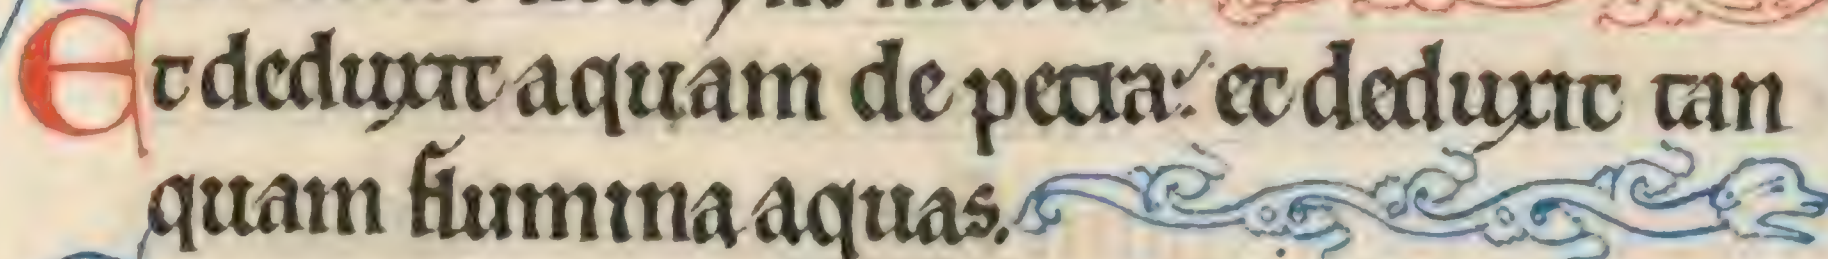 Et deduxit aquam de petra: et deduxit tan
quam flumina aquas.